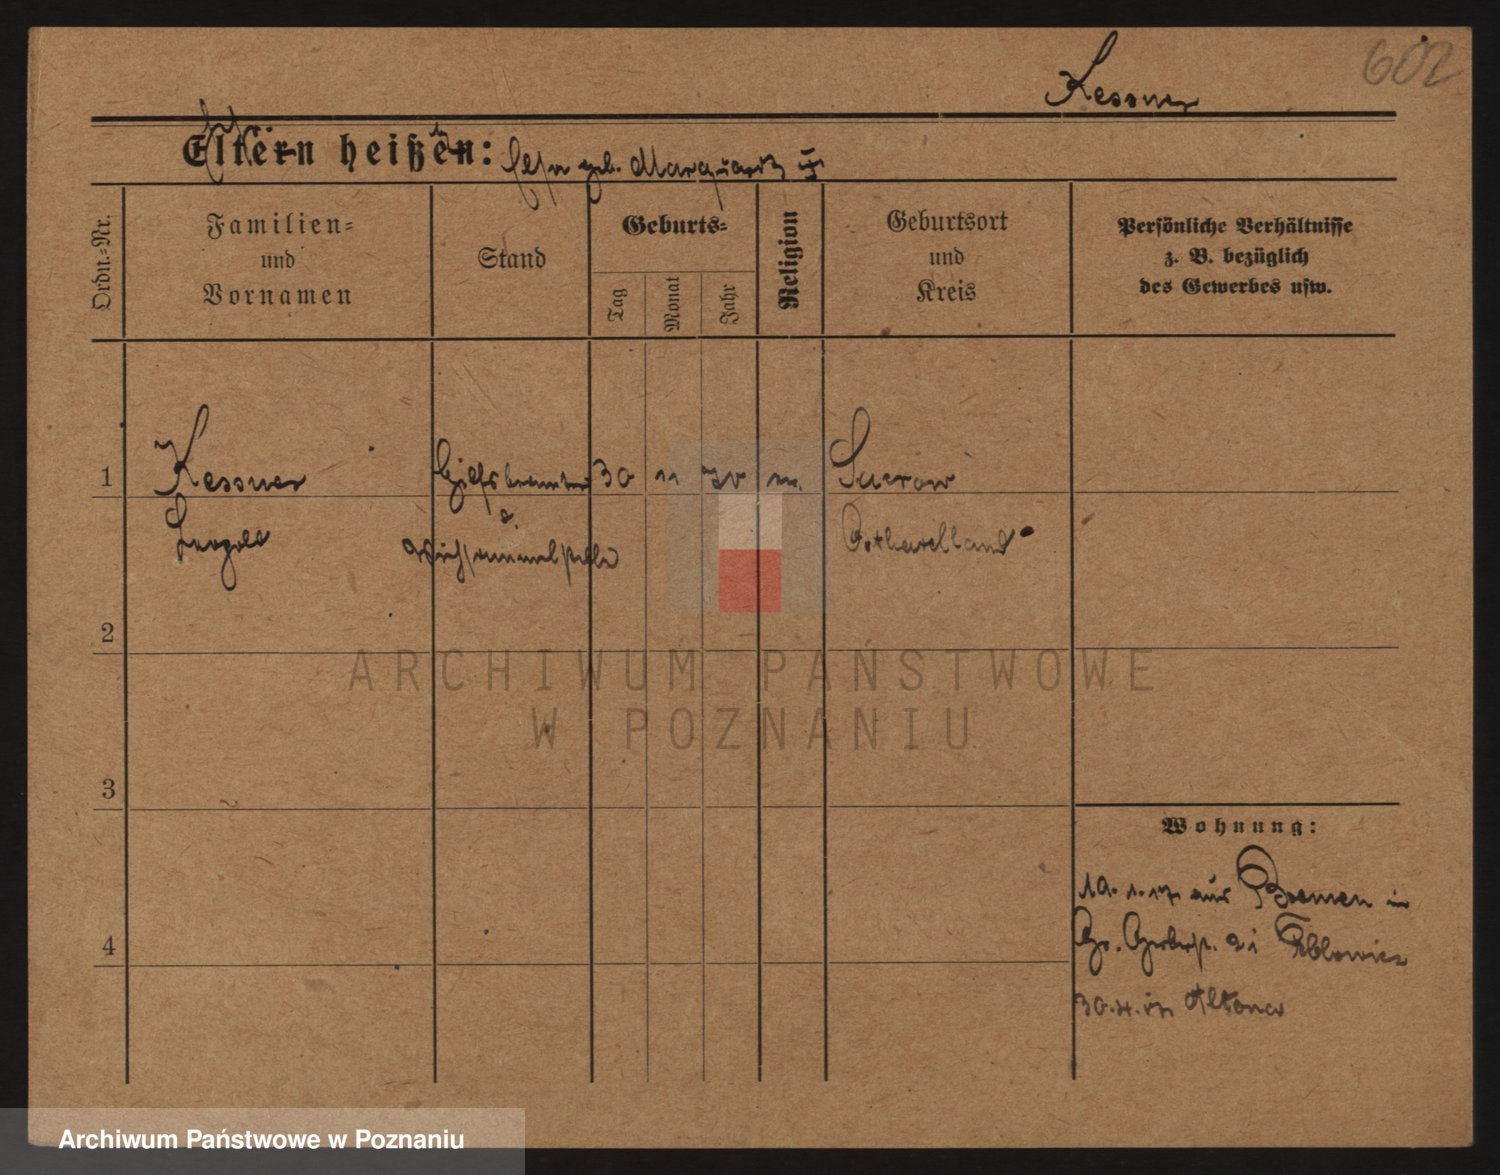 602
Kessner
Eltern heißen: geb. Marquardt
Ordn.=Nr.
Familien=
und
Vornamen
Stand
Geburts=
Tag
Monat
Jahr
Religion
Geburtsort
und
Kreis
Persönliche Verhältnisse
z. B. bezüglich
des Gewerbes usw.
1
Kessner
Hilfsbeamter
30
11
70
Sacrow
Leopold
d.
Osthavelland
2
3
4
Wohnung:
19. 1. 17 aus Bremen in
Gr. Gerberst. 2 i
30. 4. 17 Altona
ARCHIWUM PAŃSTWOWE
W POZNANIU
Archiwum Państwowe w Poznaniu